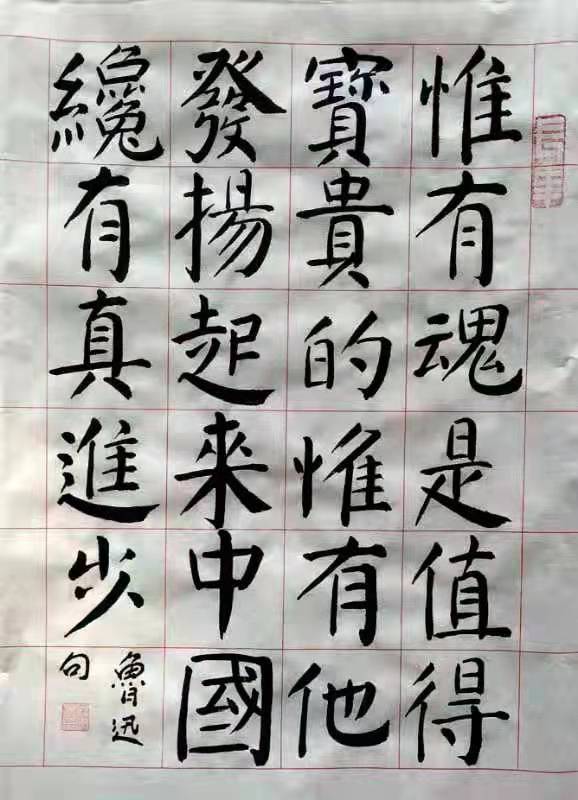 惟有魂是值得
寶貴的惟有他
發揚起來中國
纔有真進步
魯迅
句